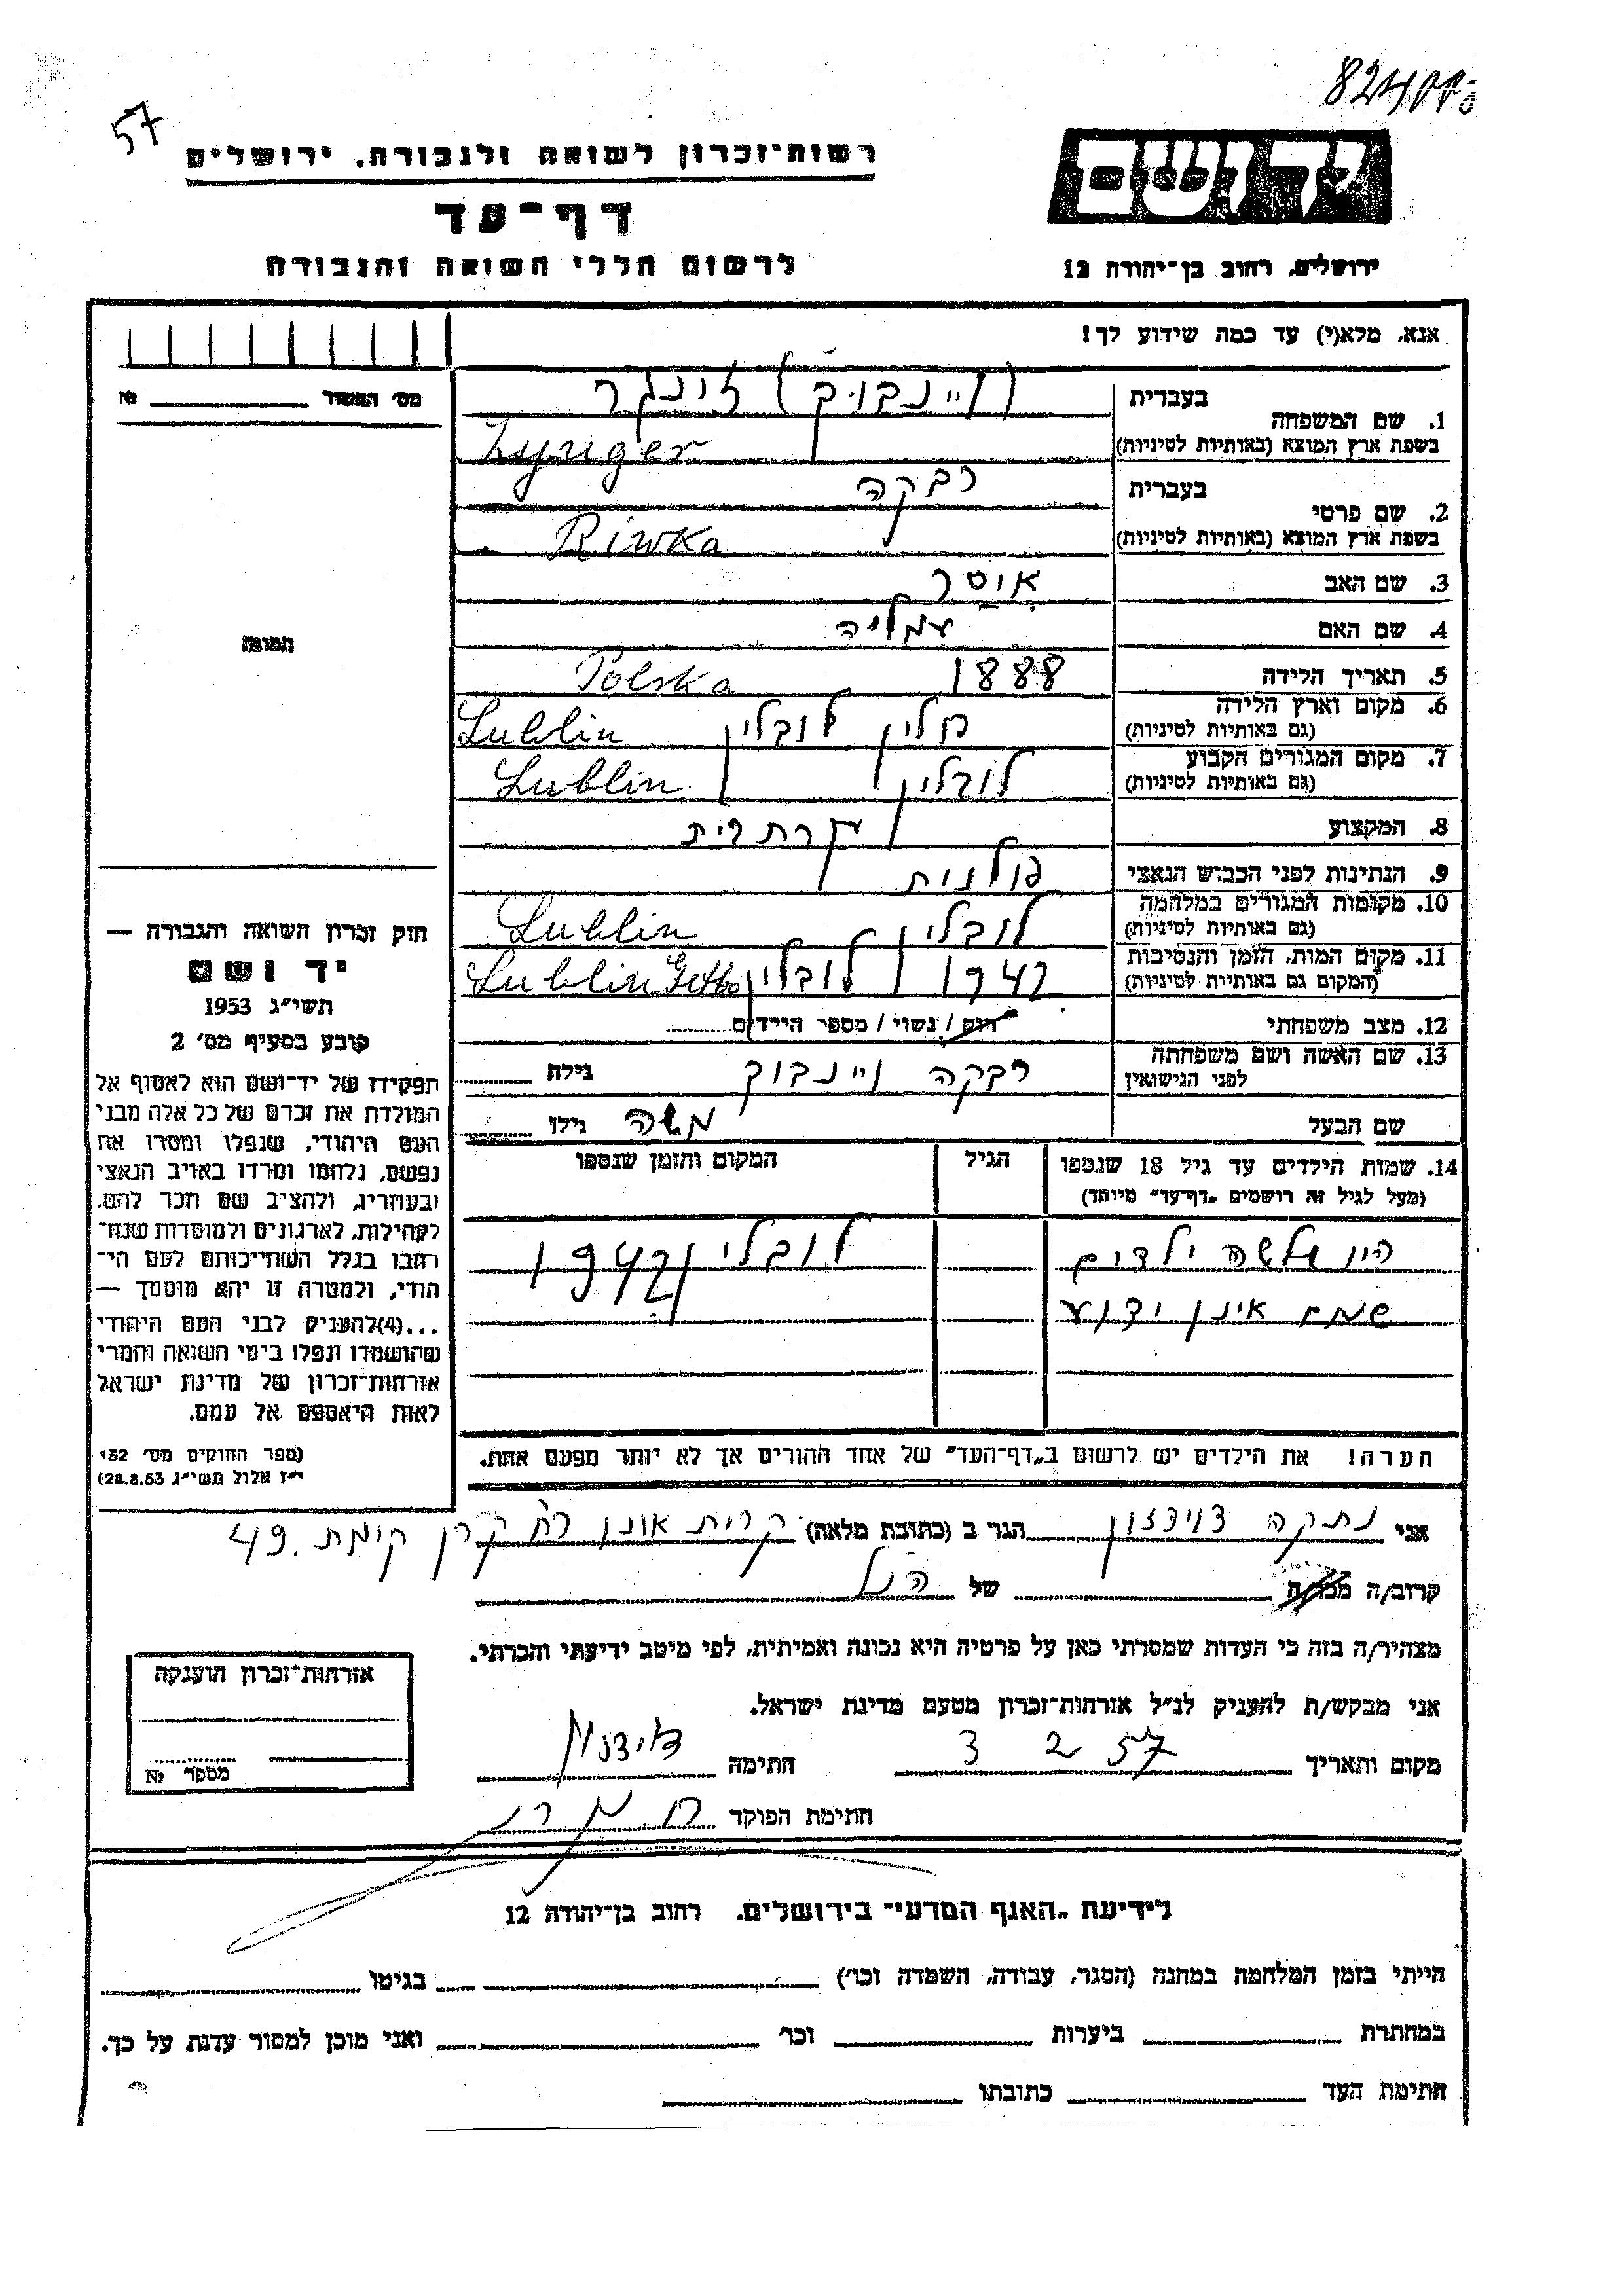 57
רשות־זכרון לשואה ולגבורה. ירושלים
דף־עד
לרשום חללי השואה והגבורה
יד ושם
ירושלים, רחוב בן־יהודה 12
אנא, מלא(י) עד כמה שידוע לך!
מס' האשור № 
1. שם המשפחה בעברית (ויינבוים) זינגר
בשפת ארץ המוצא (באותיות לטיניות) Zynger
2. שם פרטי בעברית רבקה
בשפת ארץ המוצא (באותיות לטיניות) Riwka
3. שם האב איסר
4. שם האם עמליה
5. תאריך הלידה 1888 Polska
6. מקום וארץ הלידה פולין לובלין Lublin
(גם באותיות לטיניות)
7. מקום המגורים הקבוע לובלין Lublin
(גם באותיות לטיניות)
8. המקצוע עקרת בית
9. הנתינות לפני הכבוש הנאצי פולנית
10. מקומות המגורים במלחמה לובלין Lublin
(גם באותיות לטיניות)
11. מקום המות, הזמן והנסיבות 1942 לובלין Lublin Getto
(המקום גם באותיות לטיניות)
12. מצב משפחתי רווק / נשוי / מספר הילדים
13. שם האשה ושם משפחתה רבקה ויינבוים גילה
לפני הנישואין
שם הבעל משה גילו
14. שמות הילדים עד גיל 18 שנספו הגיל המקום והזמן שנספו
(מעל לגיל זה רושמים "דף־עד" מיוחד)
היו שלשה ילדים לובלין 1942
שמם אינן ידוע
הערה! את הילדים יש לרשום ב"דף־העד" של אחד ההורים אך לא יותר מפעם אחת.
תמונה
חוק זכרון השואה והגבורה —
יד ושם
תשי"ג 1953
קובע בסעיף מס' 2
תפקידו של יד־ושם הוא לאסוף אל
המולדת את זכרם של כל אלה מבני
העם היהודי, שנפלו ומסרו את
נפשם, נלחמו ומרדו באויב הנאצי
ובעוזריו, ולהציב שם וזכר להם,
לקהילות, לארגונים ולמוסדות שנח־
רבו בגלל השתייכותם לעם הי־
הודי, ולמטרה זו יהא מוסמך —
...(4) להעניק לבני העם היהודי
שהושמדו ונפלו בימי השואה והמרי
אזרחות־זכרון של מדינת ישראל
לאות היאספם אל עמם.
(ספר החוקים מס' 132
י"ז אלול תשי"ג 28.8.53)
אני נתקה דוידזון הגר ב (כתובת מלאה) קרית אונו רח קרן קימת 49.
קרוב/ה מכר/ה של הנ"ל
מצהיר/ה בזה כי העדות שמסרתי כאן על פרטיה היא נכונה ואמיתית, לפי מיטב ידיעתי והכרתי.
אני מבקש/ת להעניק לנ"ל אזרחות־זכרון מטעם מדינת ישראל.
מקום ותאריך 3 2 57 חתימה
חתימת הפוקד
אזרחות־זכרון הוענקה
מספר №
לידיעת "האגף המדעי" בירושלים. רחוב בן־יהודה 12
הייתי בזמן המלחמה במחנה (הסגר, עבודה, השמדה וכו') בגיטו
במחתרת ביערות וכו' ואני מוכן למסור עדות על כך.
חתימת העד כתובתו